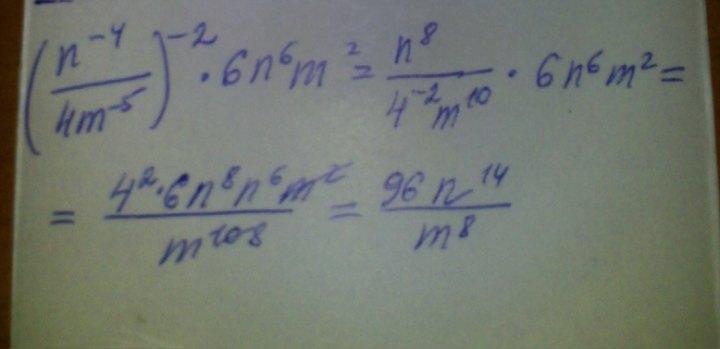 (n⁻⁴/4m⁻⁵)⁻² · 6n⁶m² = n⁸/4⁻²m¹⁰ · 6n⁶m² =
= 4²·6n⁸n⁶m²/m¹⁰ ⁸ = 96n¹⁴/m⁸